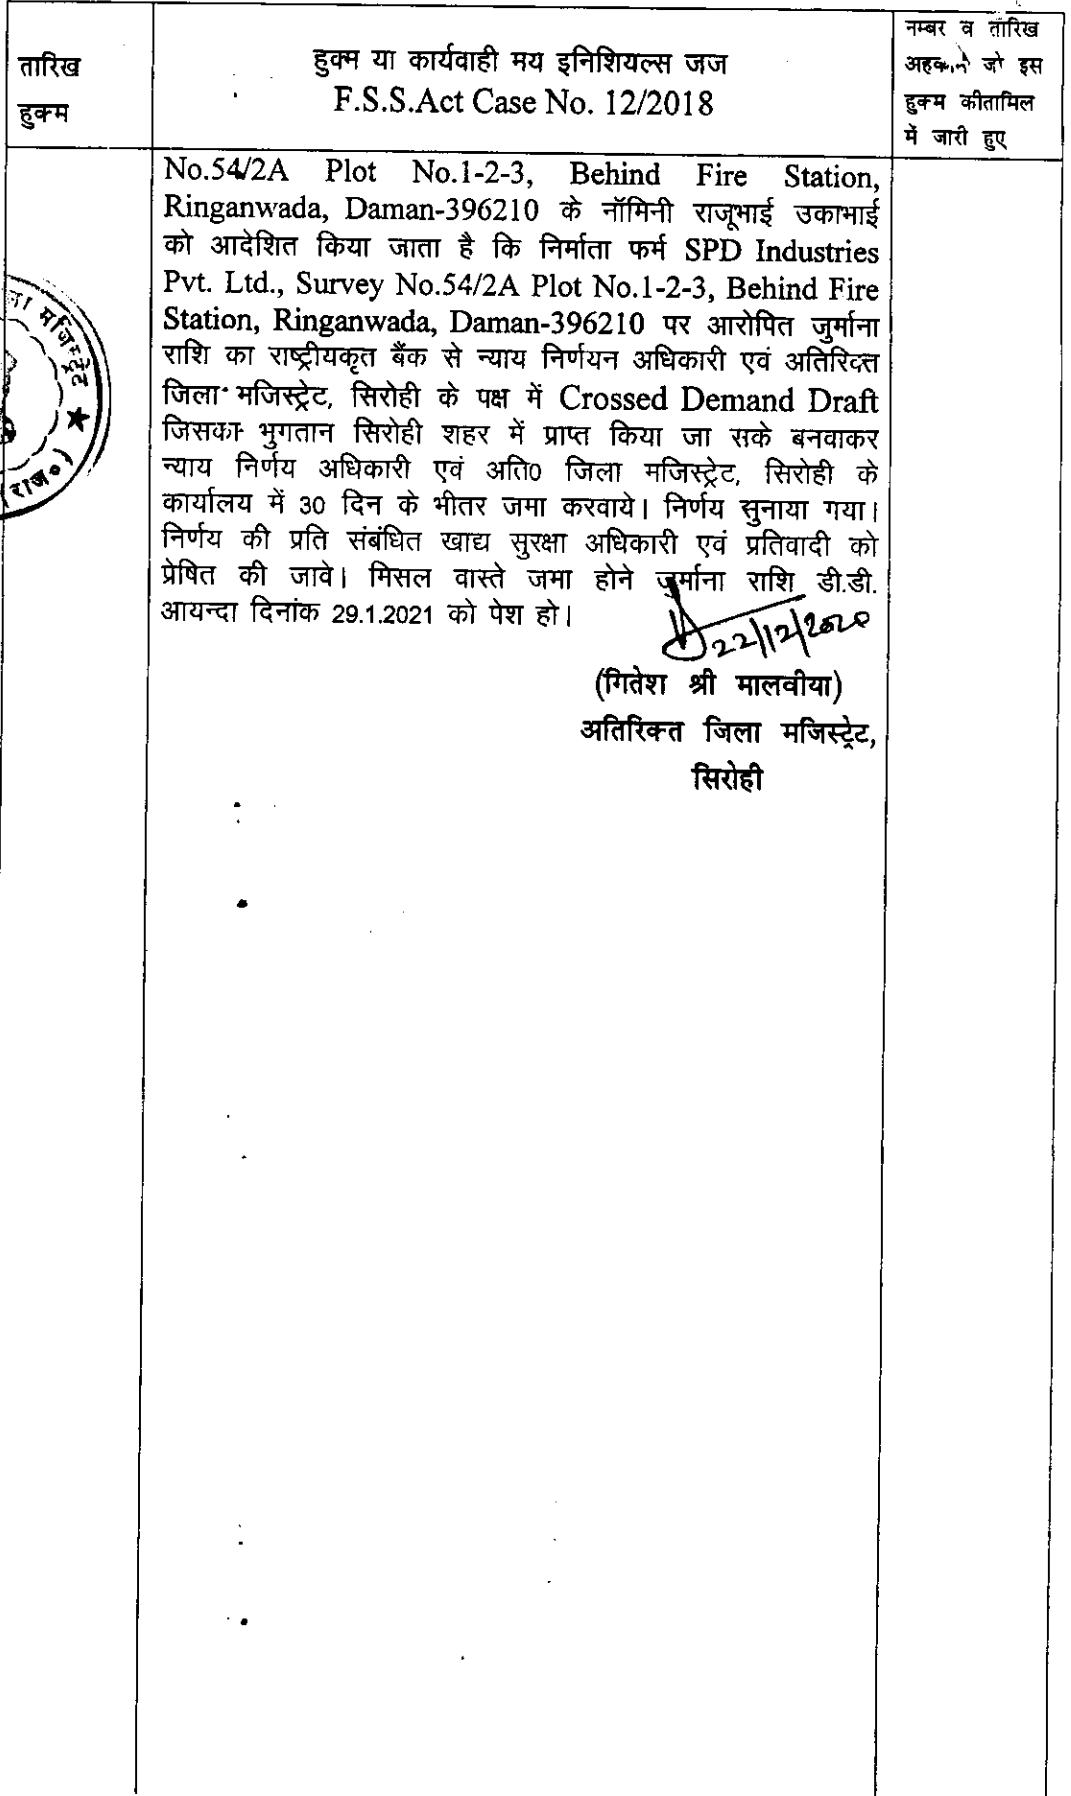 तारिख
हुक्म
हुक्म या कार्यवाही मय इनिशियल्स जज
F.S.S.Act Case No. 12/2018
नम्बर व तारिख
जो इस
हुक्म कीतामिल
में जारी हुए
No.54/2A Plot No.1-2-3, Behind Fire Station,
Ringanwada, Daman-396210 के नॉमिनी राजूभाई उकाभाई
को आदेशित किया जाता है कि निर्माता फर्म SPD Industries
Pvt. Ltd., Survey No.54/2A Plot No.1-2-3, Behind Fire
Station, Ringanwada, Daman-396210 पर आरोपित जुर्माना
राशि का राष्ट्रीयकृत बैंक से न्याय निर्णयन अधिकारी एवं अतिरिक्त
जिला मजिस्ट्रेट, सिरोही के पक्ष में Crossed Demand Draft
जिसका भुगतान सिरोही शहर में प्राप्त किया जा सके बनवाकर
न्याय निर्णय अधिकारी एवं अति0 जिला मजिस्ट्रेट, सिरोही के
कार्यालय में 30 दिन के भीतर जमा करवाये। निर्णय सुनाया गया।
निर्णय की प्रति संबंधित खाद्य सुरक्षा अधिकारी एवं प्रतिवादी को
प्रेषित की जावे। मिसल वास्ते जमा होने जुर्माना राशि डी.डी.
आयन्दा दिनांक 29.1.2021 को पेश हो।
22/12/2020
(गितेश श्री मालवीया)
अतिरिक्त जिला मजिस्ट्रेट,
सिरोही
मजिस्ट्रेट ★
(राज०)